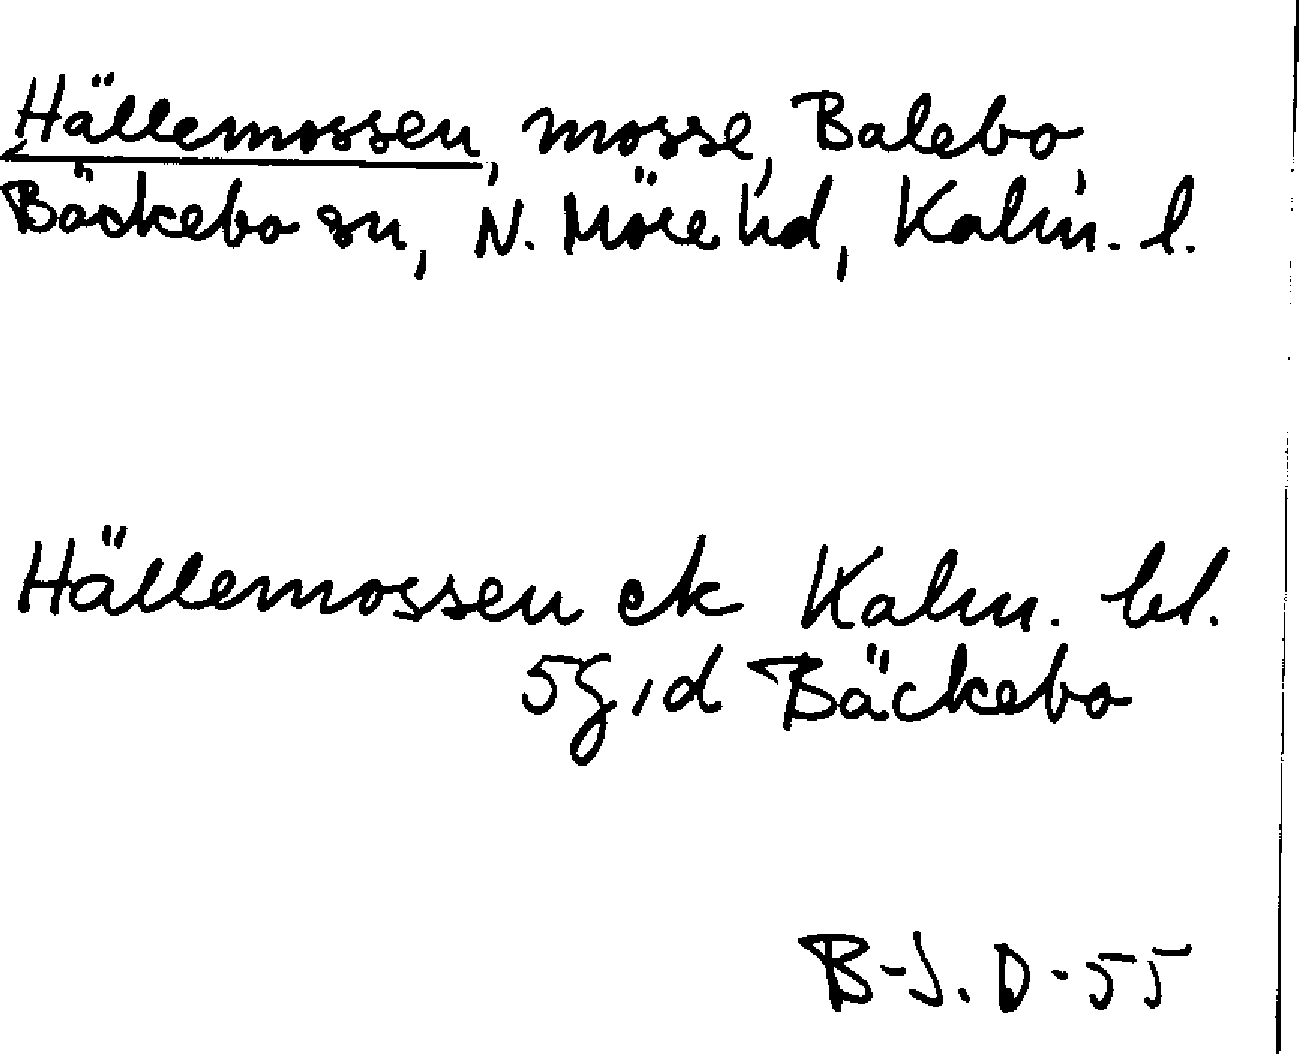 Hällemossen, mosse, Balebo,
Bäckebo sn, N. Möre hd, Kalm. l.
Hällemossen ek Kalm. bl.
5g, d Bäckebo
B-J. D-55